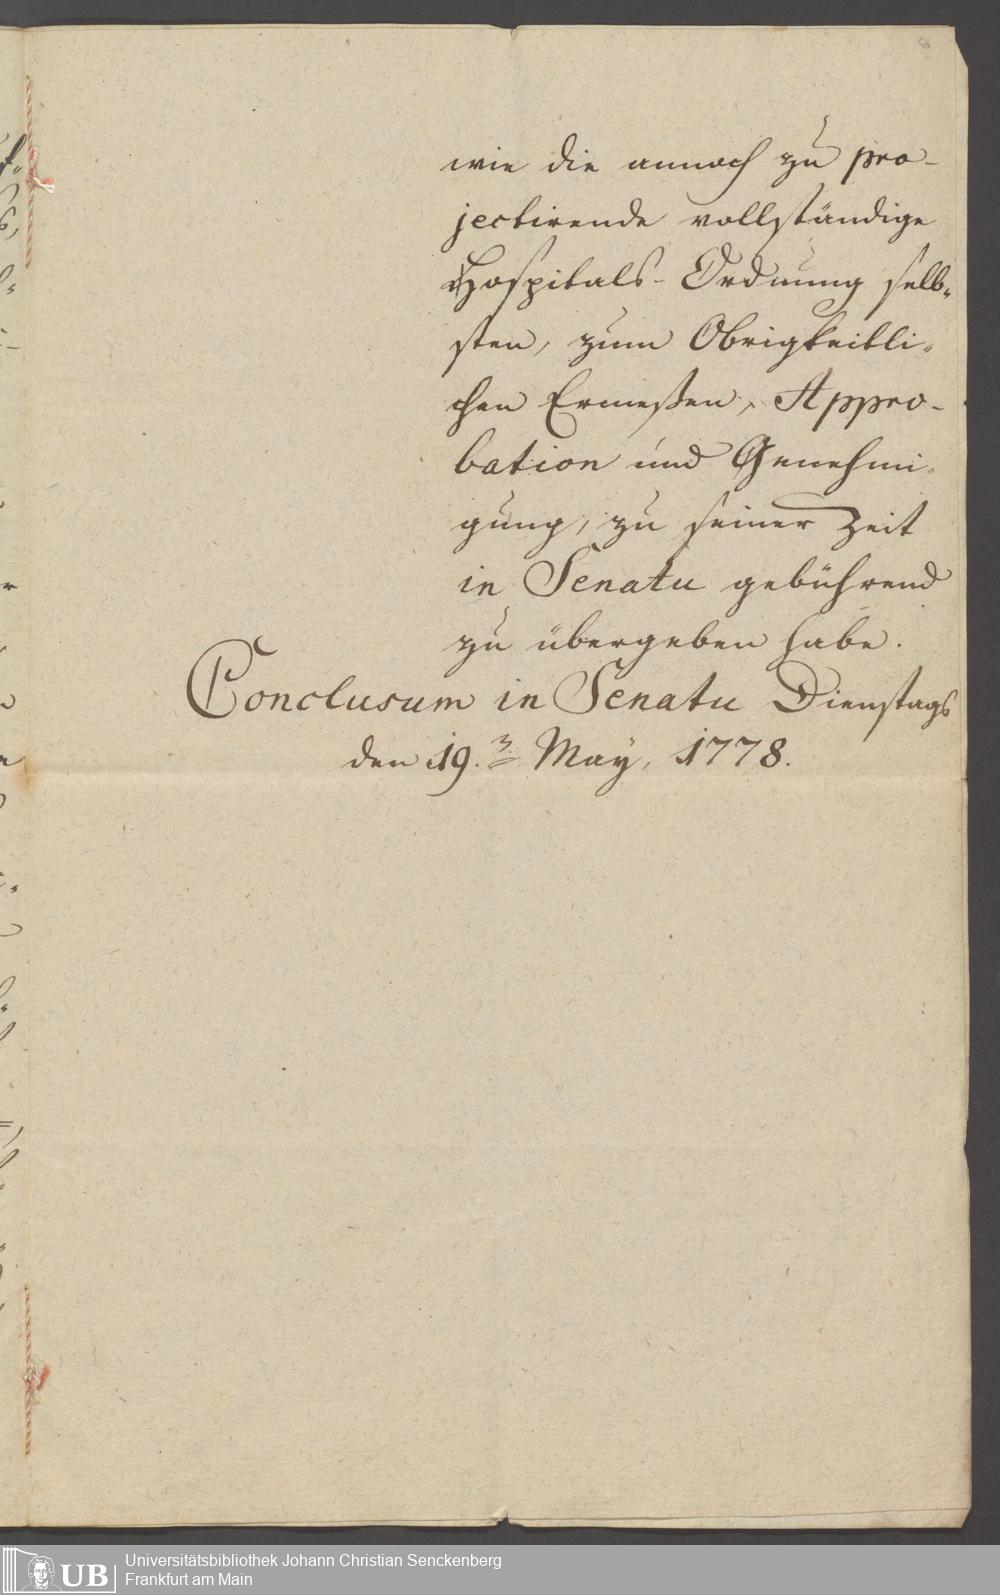 wie die annoch zu pro-
jectirende vollständige
Hospitals-Ordnung selb-
sten, zum Obrigkeitli-
chen Ermeßen, Appro-
bation und Genehmi-
gung, zu seiner Zeit
in Senatu gebührend
zu übergeben habe.
Conclusum in Senatu Dienstags
den 19. May, 1778.
UB
Universitätsbibliothek Johann Christian Senckenberg
Frankfurt am Main